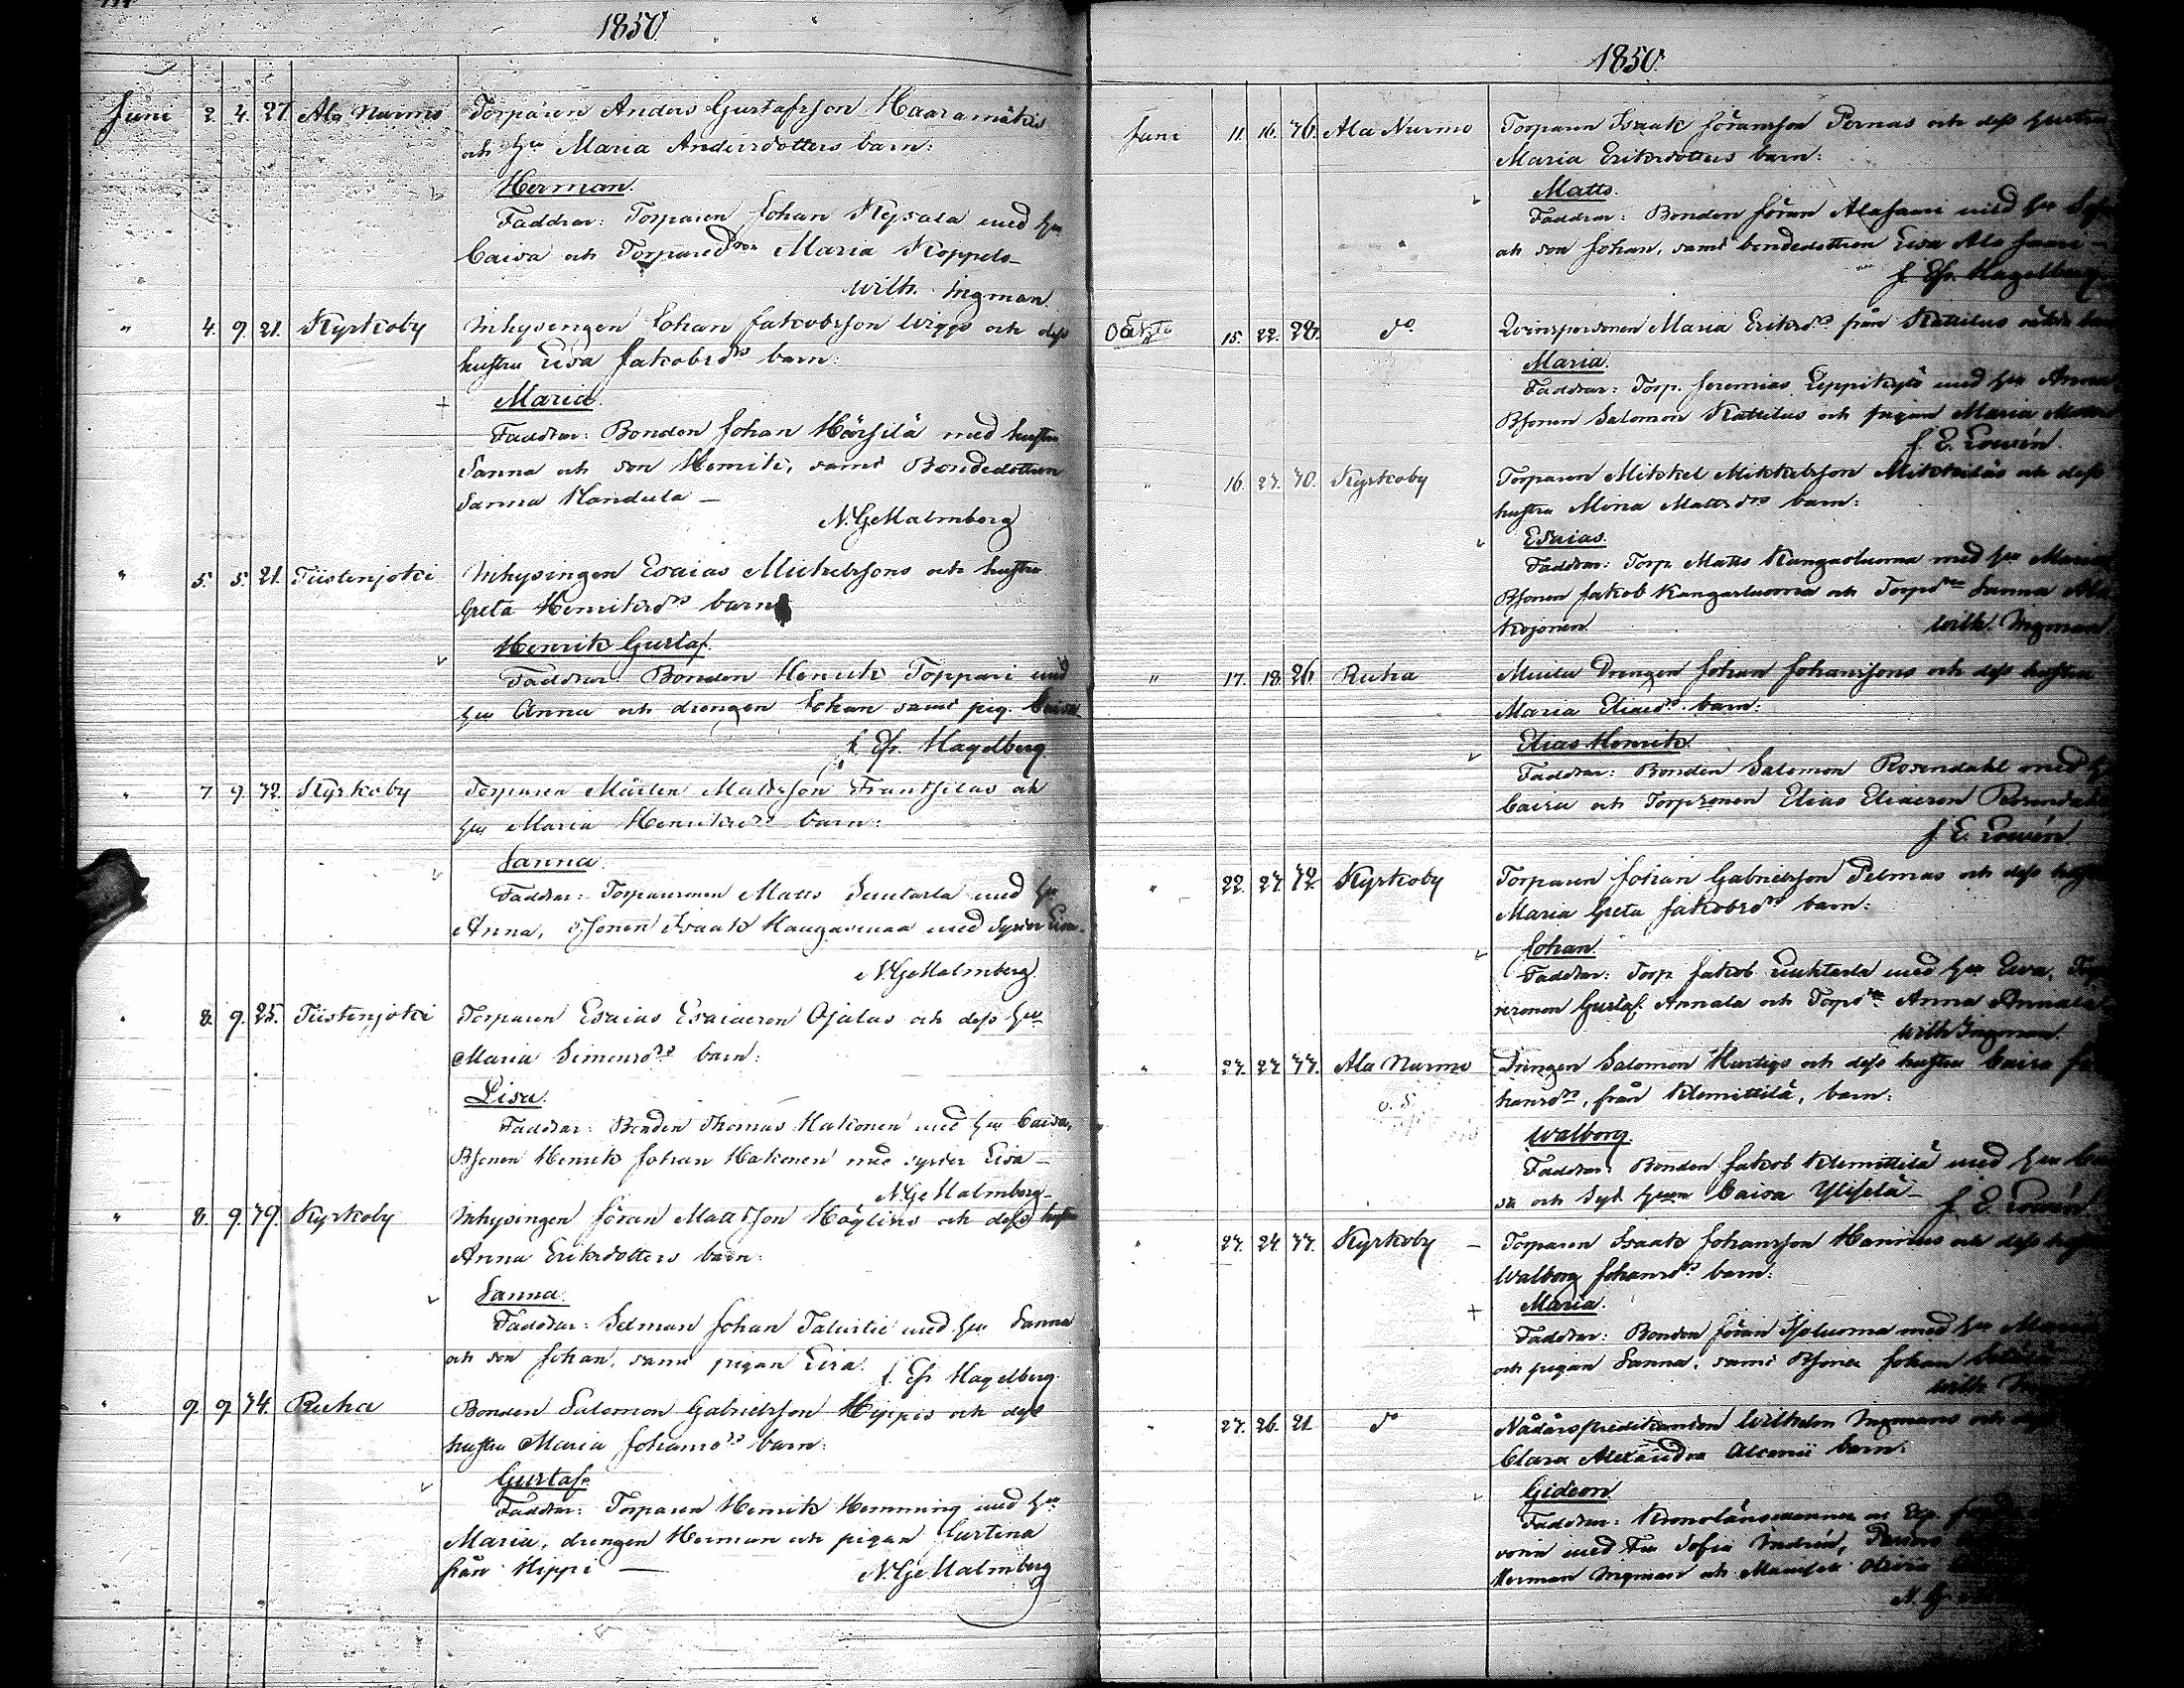 1850
Juni 2. 4. 27. Ala Nurmo Torparen Anders Gustafsson Haaramäkis
och hu Maria Andersdotters barn:
Herman.
Faddrar: Torparen Johan Kysala med hu
Caisa och Torpared:n Maria Koppelo
Wilh. Ingman.
" 4. 9. 21. Kyrkoby Inhysingen Johan Jakobsson Wipps och dess
hustru Lisa Jakobsd:rs barn:
Maria.
Faddrar: Bonden Johan Härsilä med hustru
Sanna och son Henrik, samt Bondedottren
Sanna Handula —
N. G. Malmberg
" 5. 5. 21. Tiistenjoki Inhysingen Esaias Michelssons och hustru
Greta Henriksd:rs barn
Henrik Gustaf.
Faddrar: Bonden Henrik Toppari med
hu Anna och drengen Johan samt pig. Caisa
J. Efr. Hagelberg.
" 7. 9. 42. Kyrkoby Torparen Mårten Mattsson Frantsilas och
hu Maria Henriksd:rs barn:
Sanna.
Faddrar: Torparesonen Matts Luhtasla med hu
Anna, Bsonen Isaak Haugasmaa med syster Lisa.
N. G. Malmberg.
" 8. 9. 25. Tiistenjoki Torparen Esaias Esaiaeson Ojalas och dess hu
Maria Simonsd:rs barn:
Lisa.
Faddrar: Bonden Thomas Hakonen med hu Caisa,
Bsonen Henrik Johan Hakonen med syster Lisa —
N. G. Malmberg
" 8. 9. 49. Kyrkoby Inhysingen Jöran Mattsson Höglins och dess hustru
Anna Eriksdotters barn:
Sanna.
Faddrar: Sedman Johan Talvitie med hu Sanna
och son Johan, samt pigan Lisa.
J. Efr. Hagelberg.
" 9. 9. 44. Ruha Bonden Salomon Gabrielsson Hippis och dess
hustru Maria Johansd:rs barn:
Gustaf.
Faddrar: Torparen Henrik Hemming med hu
Maria, drengen Herman och pigan Justina
från Hippi — N. G. Malmberg
1850.
Juni 11. 16. 46. Ala Nurmo Torparen Isaak Jöransson Pernas och dess hustru
Maria Eriksdotters barn:
Matts.
Faddrar: Bonden Jöran Alasaari med hu
och son Johan, samt bondedottren Lisa Ala Saari —
J. Efr. Hagelberg
15. 22. 28. d:o Qvinspersonen Maria Eriksd:rs från Kattilus oäkta barn
Maria.
Faddrar: Torp. Jeremias Leppikytö med hu Anna
Bsonen Salomon Kattilus och pigan Maria
J. E. Lowén.
" 16. 24. 40. Kyrkoby Torparen Mikkel Mikkelsson Mikkiläs och dess
hustru Mina Mattsd:rs barn:
Esaias.
Faddrar: Torp. Matts Kangasluoma med hu Maria
Bsonen Jakob Kangasluoma och Torpd:n Sanna Ala
Kojonen. Wilh. Ingman
" 17. 18. 26. Ruha Drengen Johan Johanssons och dess hustru
Maria Eliaed:rs barn:
Elias Henrik.
Faddrar: Bonden Salomon Rosendahl med hu
Caisa och Torpsonen Elias Eliaeson Rosendahl
J. E. Lowén.
" 22. 24. 42. Kyrkoby Torparen Johan Gabrielsson Pelmas och dess hustru
Maria Greta Jakobsd:rs barn:
Johan.
Faddrar: Torp. Jakob Luhtasla med hu Ewa,
resonen Gustaf Annala och Torpd:n Anna Annala
Wilh. Ingman.
" 24. 24. 44. Ala Nurmo Drengen Salomon Hurtigs och dess hustru Caisa Jo
hansd:rs, från Klemittilä, barn:
Walborg.
Faddrar: Bonden Jakob Klemittilä med hu Cai
sa och Syt. hun Caisa Yliselä —
J. E. Lowén.
" 24. 24. 44. Kyrkoby Torparen Isaak Johansson Hannus och dess hustru
Walborg Johansd:rs barn:
Maria.
Faddrar: Bonden Jöran Isoluoma med hu Maria
och pigan Sanna, samt Bsonen Johan
Wilh. Ingman
" 24. 26. 21. d:o Nådårspredikanten Wilhelm Ingmans och dess
Clara Alexandra Alcenii barn:
Gideon.
Faddrar: Kronolänsmannen
med Fru Sofia Indrén,
Herman Ingman och Mamsell Olivia
N. G.